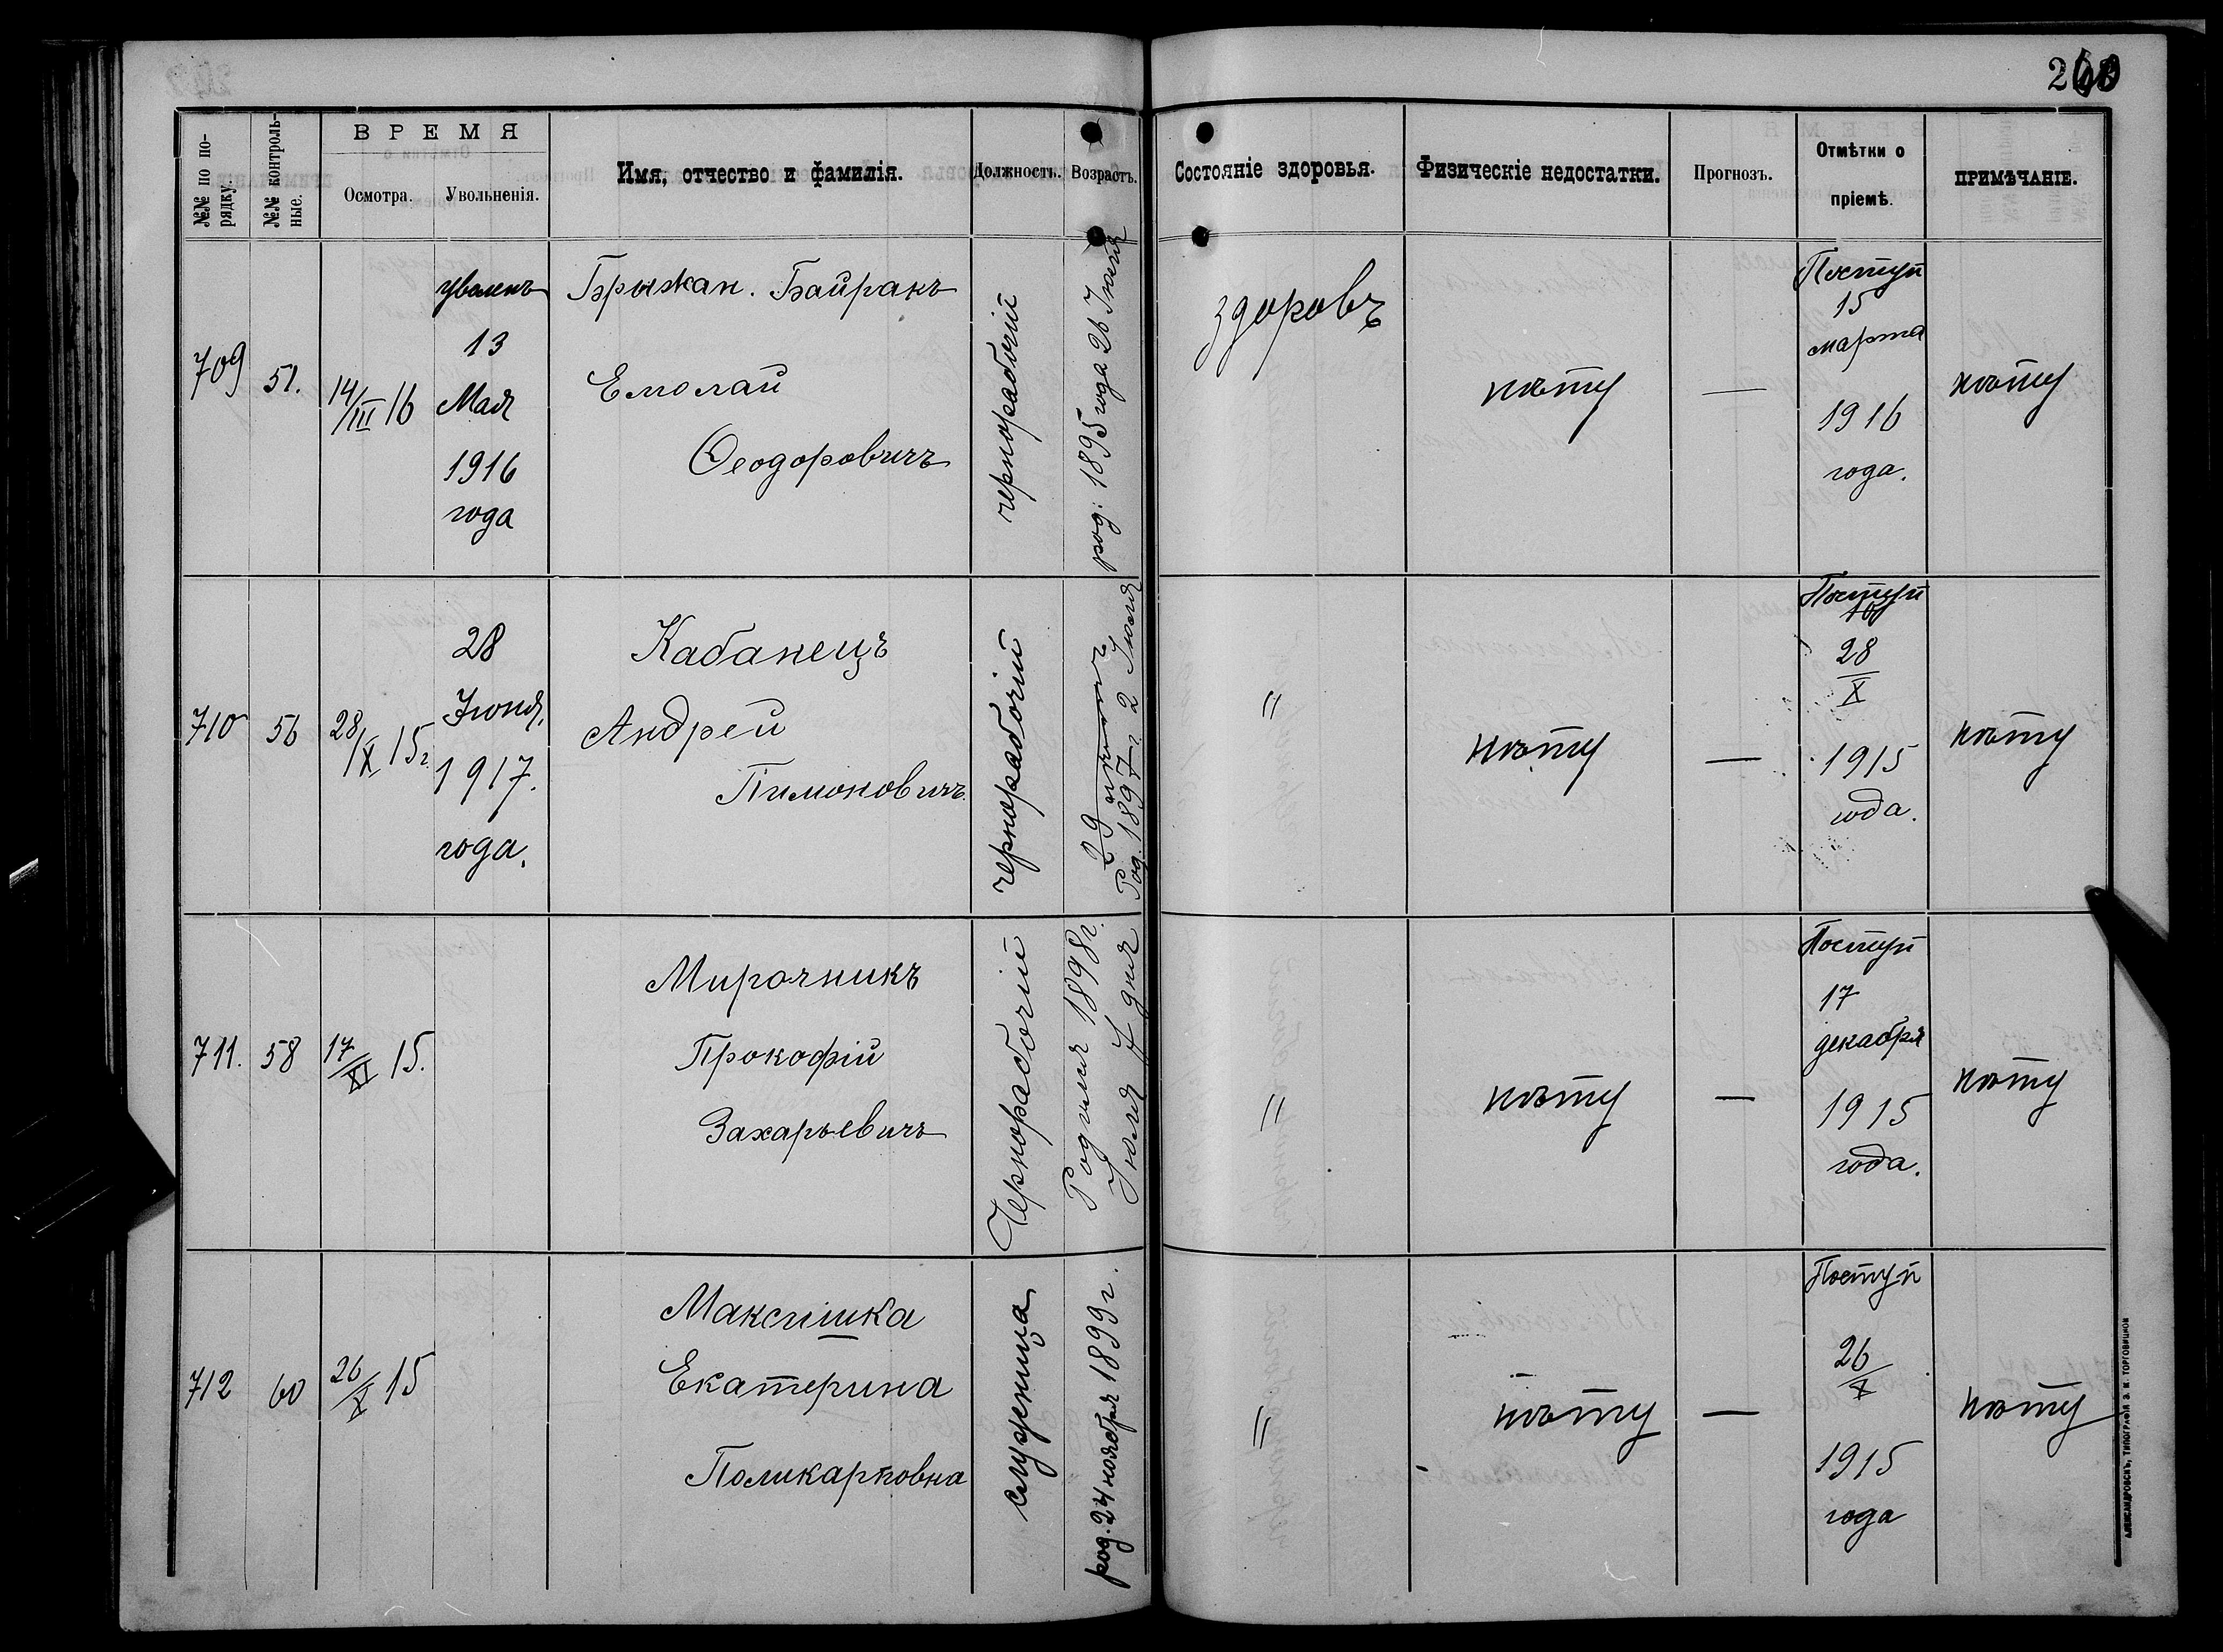 260
№№ по по-
рядку.
№№ контроль-
ные.
ВРЕМЯ
Осмотра.
Увольненія.
Имя, отчество и фамилія.
Должность.
Возрастъ.
Состояніе здоровья.
Физическіе недостатки.
Прогнозъ.
Отмѣтки о
пріемѣ.
ПРИМѢЧАНІЕ.
709
51.
14/III 16
уволенъ
13
Мая
1916
года
Брыжан. Байракъ
Емолай
Ѳеодоровичъ
чернорабочій
род: 1895 года 26 Іюля
здоровъ
нѣту
—
Поступ
15
марта
1916
года.
нѣту
710
56
28/X 15г.
28
Іюня,
1917.
года.
Кабанецъ
Андрей
Пимоновичъ.
чернорабочій
Род. 1897 г. 2 Іюля
"
нѣту
—
Поступ
28
X
1915
года.
нѣту
711.
58
17/XI 15.
Мирочникъ
Прокофій
Захарьевичъ
Чернорабочій
Родился 1898г.
Іюля 7 дня
"
нѣту
—
Поступ
17
декабря
1915
года.
нѣту
712
60
26/X 15
Максишка
Екатерина
Поликарповна
служница
род. 24 ноября 1899г.
"
нѣту
—
Поступ
26
X
1915
года
нѣту
АЛЕКСАНДРОВСКЪ, ТИПОГРАФІЯ З. И. ТОРГОВИЦКОЙ